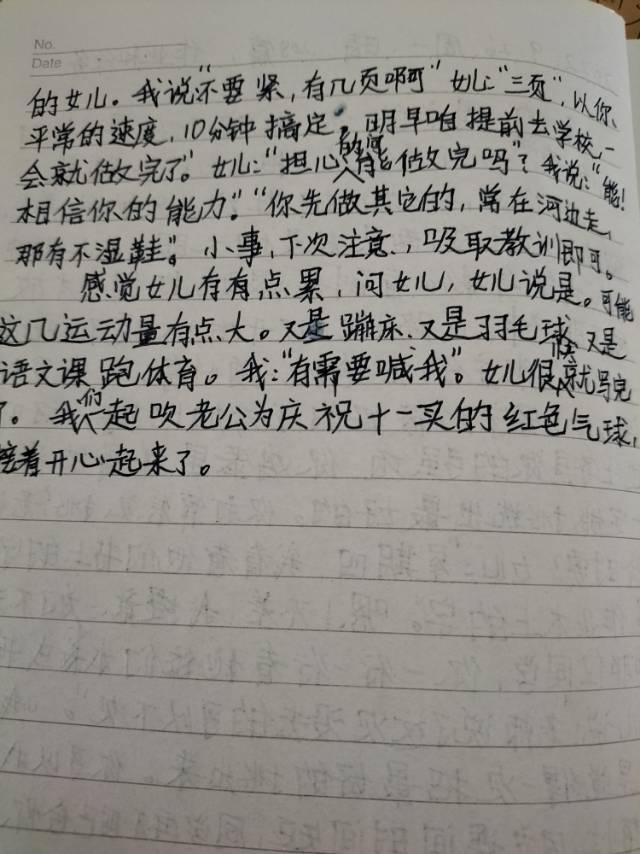 No.
Date
的女儿。我说"不要紧,有几页啊"女儿:"三页",以你
平常的速度,10分钟搞定,明早咱提前去学校,一
会就做完了。"女儿:"担心的河能做完吗"?我说:"能!
相信你的能力"."你先做其它的,常在河边走,
那有不湿鞋"。小事,下次注意,吸取教训即可。
感觉女儿存有点累,问女儿,女儿说是。可能
这几运动量有点大。又是蹦床.又是羽毛球,又是
语文课跑体育。我:"有需要喊我"。女儿很快就写完
了。我们一起吹老公为庆祝十一买的红色气球,
接着开心起来了。